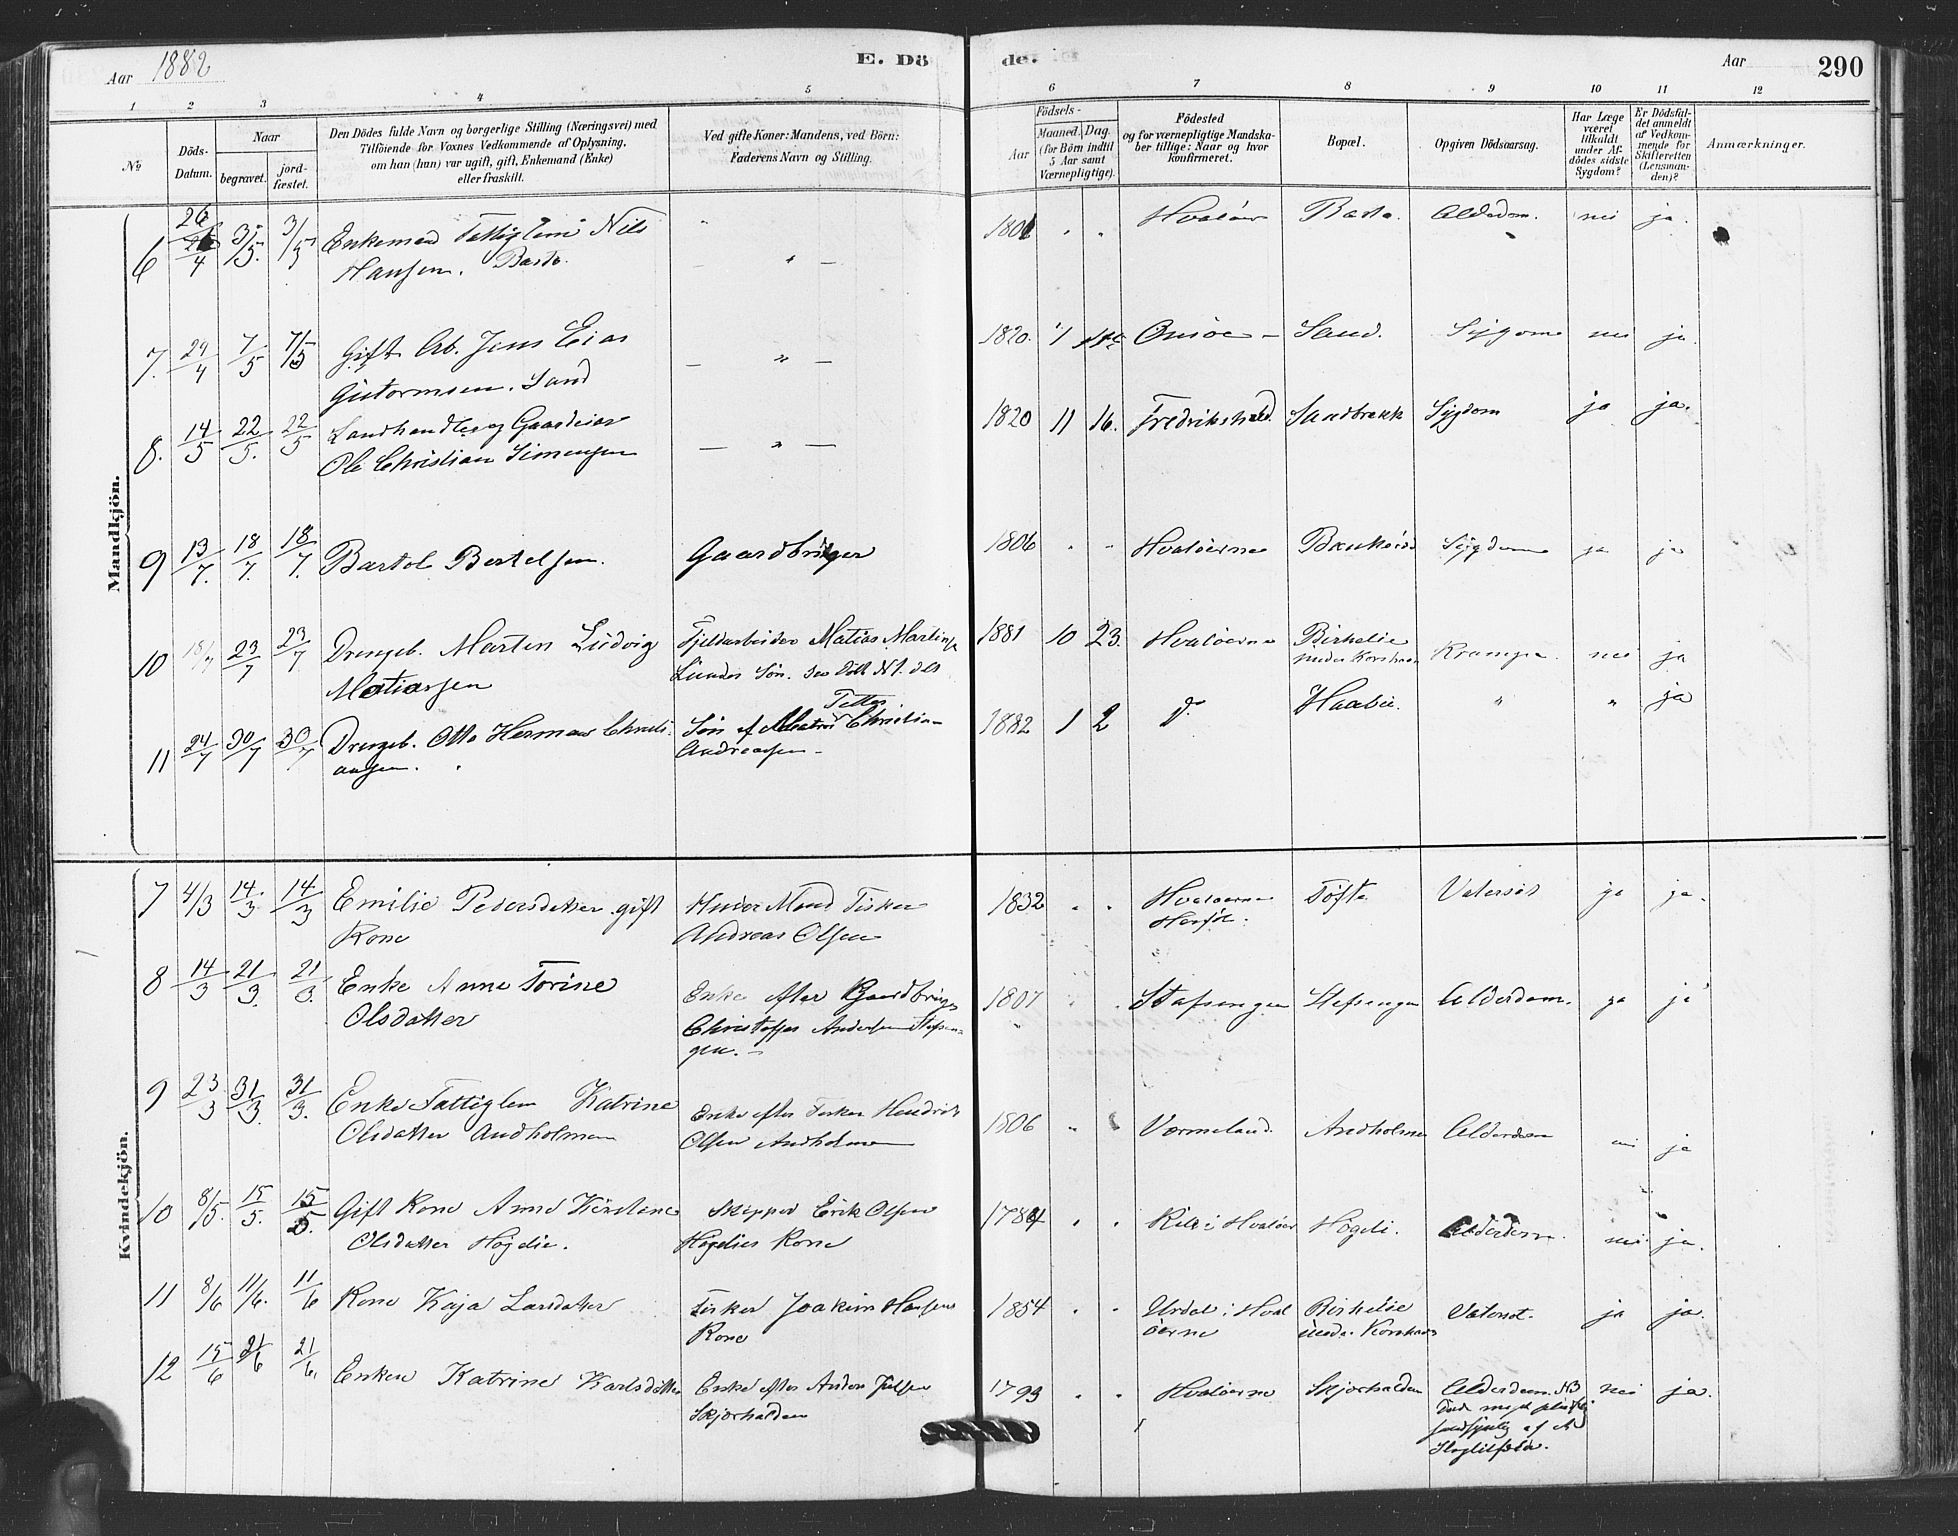 Aar 1882
E. Dö
de.
Aar
290
1 2 3 4 5 6 7 8 9 10 11 12
No
Döds-Datum.
Naar
begravet.
jord-fæstet.
Den Dödes fulde Navn og borgerlige Stilling (Næringsvei) med
Tilföiende for Voxnes Vedkommende af Oplysning,
om han (hun) var ugift, gift, Enkemand (Enke)
eller fraskilt.
Ved gifte Koner: Mandens, ved Börn:
Faderens Navn og Stilling.
Födsels-
Aar
Maaned. Dag.
(for Börn indtil
5 Aar samt
Værnepligtige).
Födested
og for værnepligtige Mandska-
ber tillige: Naar og hvor
konfirmeret.
Bopæl.
Opgiven Dödsaarsag.
Har Læge
været
tilkaldt
under Af-
dödes sidste
Sygdom?
Er Dödsfal-
det anmeldt
af Vedkom-
mende for
Skifteretten
(Lensman-
den)?
Anmærkninger.
Mandkjön.
6 26/4 3/5. 3/5 Enkemand Fattiglem Nils " 1801 " " Hvalöer Basto. Alderdom. nei ja.
Hansen. Basto. – " –
7. 29/4 7/5 7/5 Gift Arb. Jens Elias – " – 1820. Onsöe – Sand. Sygdom nei ja.
Gutormsen. Sand
8. 14/5 22/5. 22/5 Landhandler og Gaardeier – " – 1820 11 16. Fredrikshald. Sandbrekk Sygdom ja ja.
Ole Christian Simensen
9 13/7. 18/7. 18/7. Bartol Bertelsen. Gaardbruger 1806 " " Hvalöerne Sygdom ja ja
10 18/7 23/7 23/7 Drengeb. Marten Ludvig Fjeldarbeider Matias Martins 1881 10 23. Hvalöerne Birkelie Krampe. nei ja
Matiasen Lunder Sön. under Korshavn
11 24/7 30/7 30/7 Drengeb. Otto Herman Christi- Sön af Christian 1882 1 2 Do Haabie. " " ja
ansen. Andreasen –
Kvindekjön.
7 4/3 14/3. 14/3 Emilie Pedersdatter gift Hendes Mand Fisker 1832 " " Hvaloerne Töfte Vatersot ja ja.
Kone Andreas Olsen
8 14/3 21/3. 21/3. Enke Anne Torine Enke efter Gaardbruger 1807 " Stafsengen Stefsengen Alderdom. ja ja
Olsdatter Christoffer Andersen Stafsen-
gen. –
9 23/3 31/3. 31/3. Enke Fattiglem Katrine Enke efter Fisker Hendrik 1806 " Vermeland. Andholmen Alderdom nei ja
Olsdatter Andholmen Olsen Andholmen
10 8/5. 15/5. 15/5. Gift Kone Anne Kirstine Skipper Erik Olsen 1784 " " i Hvalöer Högeli. Alderdom. nei ja.
Olsdatter Högelie. Högelies Kone
11 8/6 11/6. 11/6 Kone Kaja Larsdatter Fisker Joakim Hansens 1854 " " Urdal i Hval Birkelie Vatersot. ja ja.
Kone öerne under Korshavn
12 15/6 21/6 21/6. Enken Katrine Karlsdatter Enke efter Anders Julsen 1793 " " Hvalöerne Skjærhalden Alderdom. NB nei ja.
Skjærhalden Död meget
sandsynlig af et
Slagtilfælde.